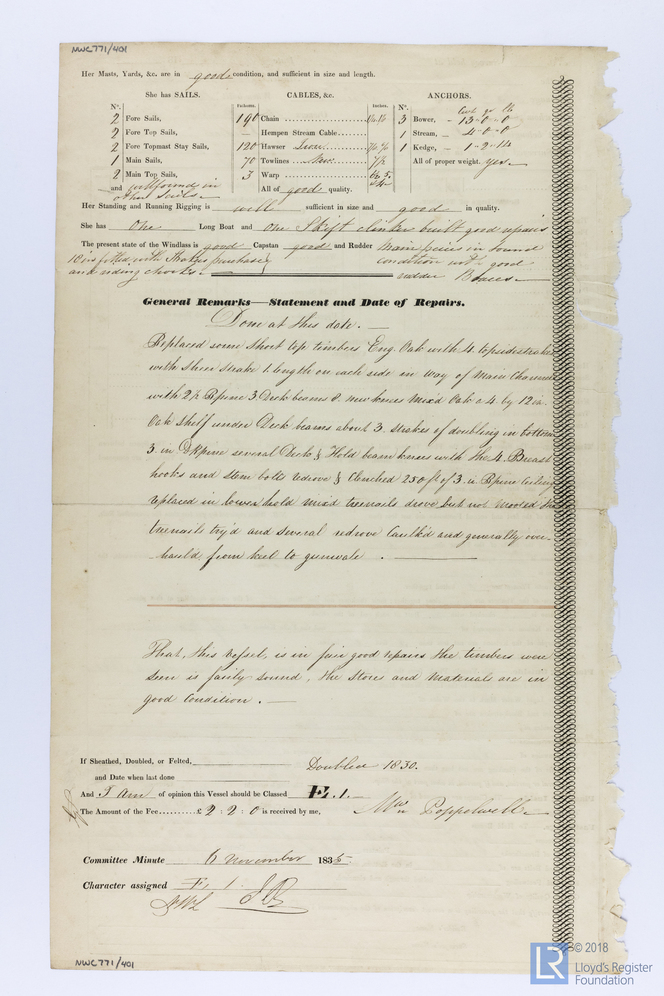 NWC771/401
Her Masts, Yards, &c. are in good condition, and sufficient in size and length.
She has SAILS. CABLES, &c. ANCHORS.
N°. Fathoms. Inches. N°. Cwt qr lb
2 Fore Sails, 190 Chain 3 Bower, - 13-0-0
2 Fore Top Sails, — Hempen Stream Cable 1 Stream, - 4-0-0
2 Fore Topmast Stay Sails, 120 Hawser 1 Kedge, - 1-2-14
1 Main Sails, 70 Towlines New 7½ All of proper weight. yes
2 Main Top Sails, 3 Warp
and well found in All of good quality.
other Sails
Her Standing and Running Rigging is well sufficient in size and good in quality.
She has One Long Boat and one Skiff clinker built good repairs
The present state of the Windlass is good Capstan good and Rudder Main piece in sound
is fitted with purchase condition not good
and riding chocks. rudder Braces
General Remarks—Statement and Date of Repairs.
Done at this date.
Replaced some short top timbers Eng. Oak with 4 topsidestrakes
with sheer strake 1 length on each side in way of Main Channels
with 2½ Rpine 3 Deck beams & new knees mix'd Oak 4 by 12 in
Oak shelf under Deck beams about 3 strakes of doubling in bottom
3 in several Deck & Hold beam knees with the 4 Breast
hooks and stem bolts redrove & Clenched 250 ft of 3 in Rpine Ceiling
replaced in lower hold mix'd treenails drove but not the
treenails try'd and several redrove Caulk'd and generally over-
hauld from keel to gunwale.
That, this vessel, is in fair good repairs the timbers were
seen is fairly sound, the Stores and Materials are in
good Condition.
If Sheathed, Doubled, or Felted, Doubled 1830.
and Date when last done
And I am of opinion this Vessel should be Classed E. 1.
The Amount of the Fee £ 2 : 2 : 0 is received by me, Wm Popplewell
Committee Minute 6 November 1835
Character assigned E. 1.
NWC771/401
LR © 2018
Lloyd's Register
Foundation